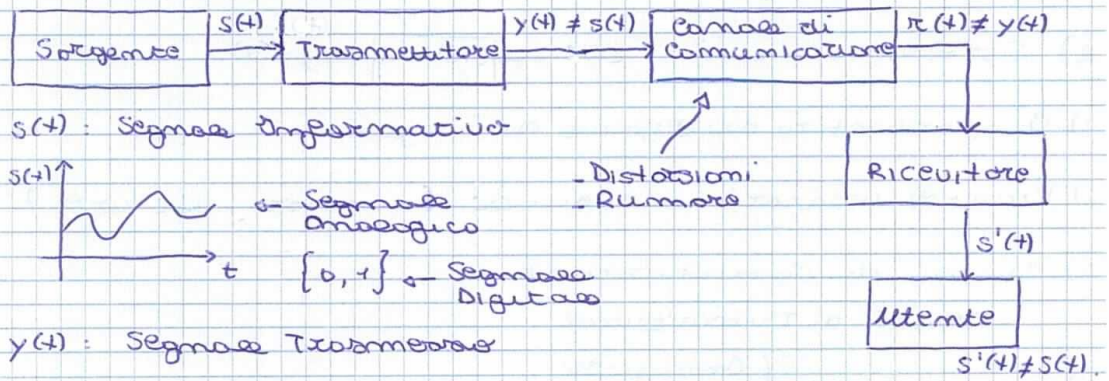 Sorgente
s(t)
Trasmettitore
y(t) ≠ s(t)
Canale di
Comunicazione
r(t) ≠ y(t)
s(t) : Segnale Informativo
- Distorsioni
- Rumore
Ricevitore
s(t)
← Segnale
Analogico
t
{0,1} ← Segnale
Digitale
s'(t)
Utente
y(t) : Segnale Trasmesso
s'(t) ≠ s(t).